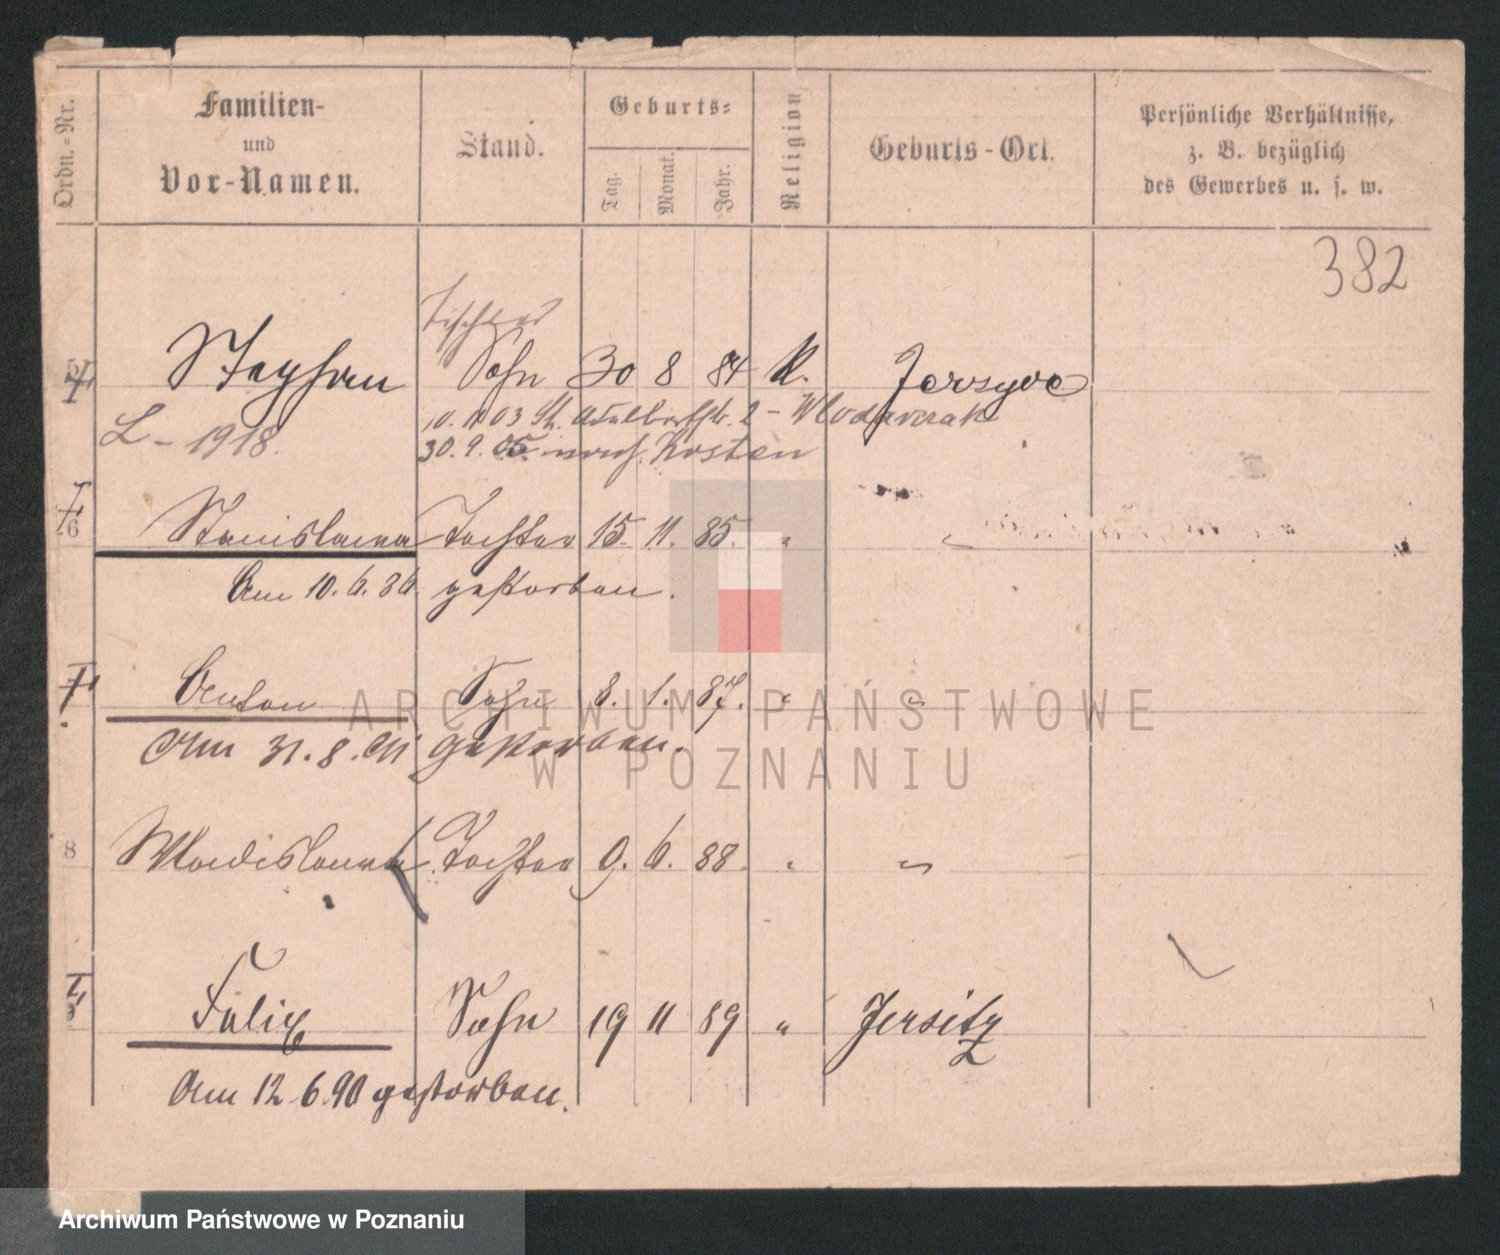 Ordn.-Nr.
Familien-
und
Vor-Namen.
Stand.
Geburts-
Tag.
Monat.
Jahr.
Religion
Geburts-Ort.
Persönliche Verhältnisse,
z. B. bezüglich
des Gewerbes u. s. w.
382
Tischler
Stephan Sohn 30 8 84 K. Jerzyce
10. 11 03 St. Adalbertstr. 2 - Wlodarczak
L - 1918.
30. 9. 05. nach Kosten
6 Stanislawa Tochter 15. 11. 85. "
Am 10. 6. 86. gestorben.
Anton Sohn 8. 1. 87. " "
Am 31. 8. gestorben.
8 Wladislawa Tochter 9. 6. 88. " "
9 Felix Sohn 19 11 89 " Jersitz
Am 12 6. 90 gestorben.
ARCHIWUM PAŃSTWOWE
W POZNANIU
Archiwum Państwowe w Poznaniu